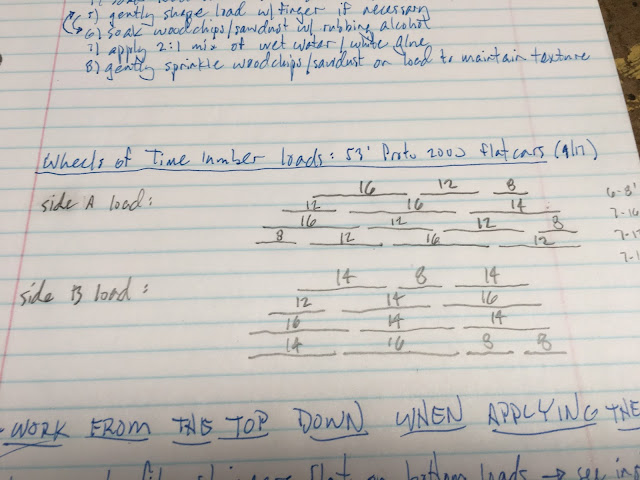 5) gently shape load w/ finger if necessary
6) soak woodchips/sawdust w/ rubbing alcohol
7) apply 2:1 mix of wet water/white glue
8) gently sprinkle woodchips/sawdust on load to maintain texture
Wheels of Time lumber loads: 53' Proto 2000 flatcars (9/17)
side A load:
16 12 8
12 16 14
16 12 12 8
8 12 16 12
6-8'
7-1
7-1
7-1
side B load:
14 8 14
12 14 16
16 14 14
14 16 8 8
WORK FROM THE TOP DOWN WHEN APPLYING THE
flat on bottom loads → see